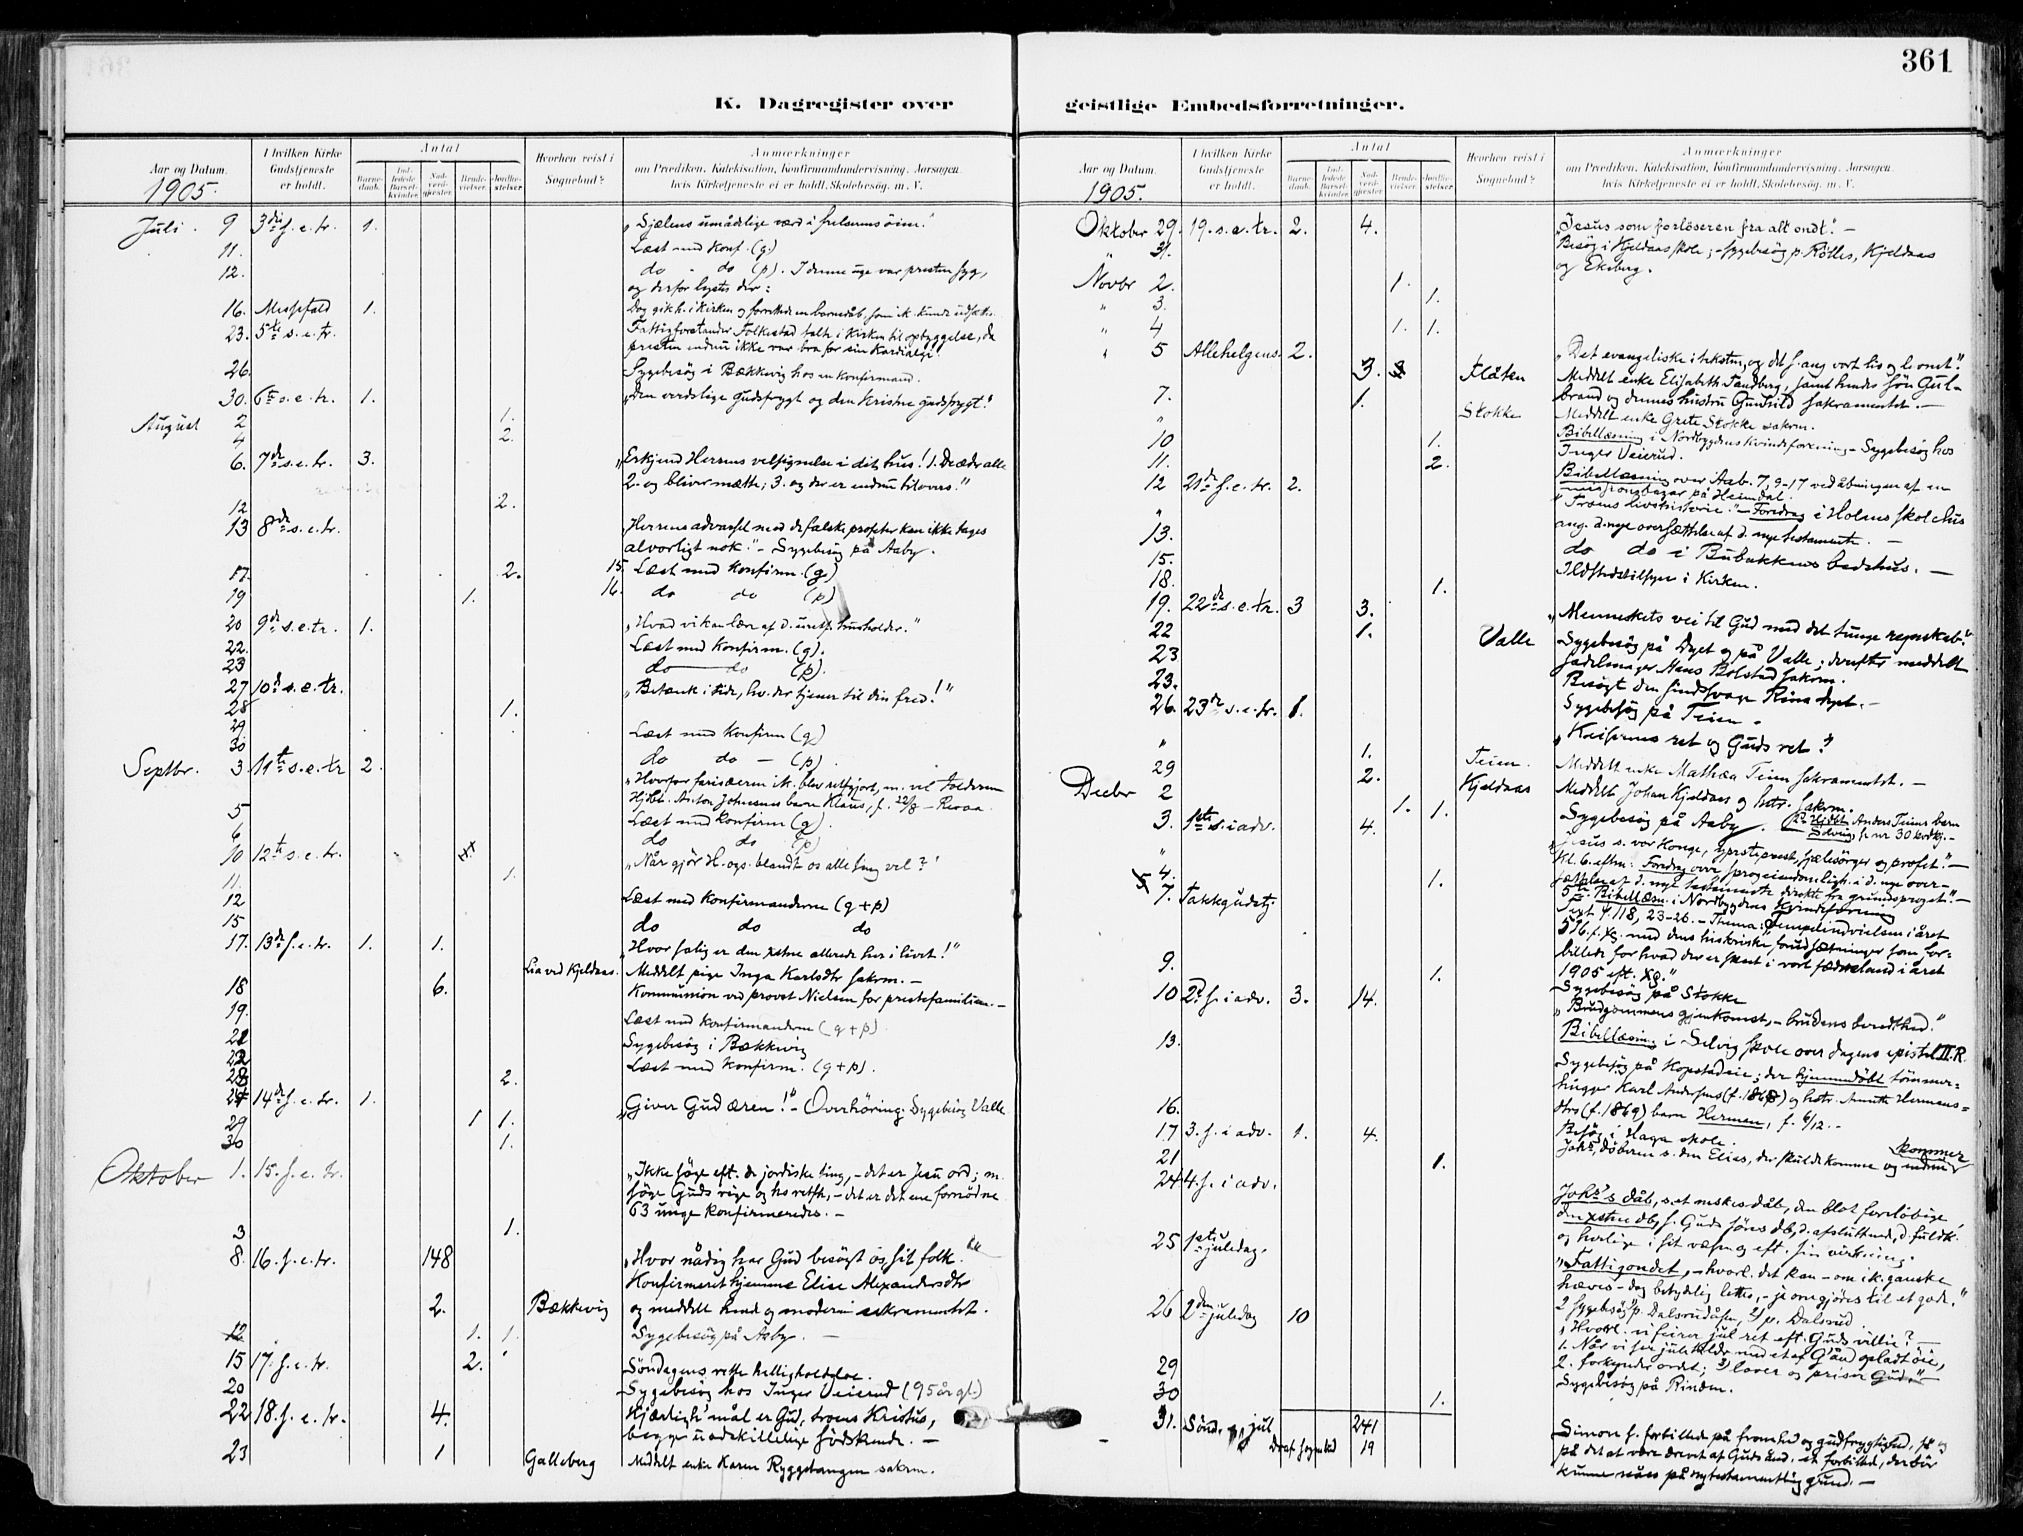 361
K. Dagregister over geistlige Embedsforretninger.
Aar og Datum. I hvilken Kirke Gudstjeneste er holdt. Antal Barnedaab. Indledede Barselkvinder. Nadverdgjester. Brudevielser. Jordfæstelser. Hvorhen reist i Sognebud? Anmærkninger om Prædiken, Katekisation, Konfirmandundervisning, Aarsagen hvis Kirketjeneste ei er holdt, Skolebesøg, m. V.
1905.
Juli. 9 3die s. e. tr. 1. „Sjælens umådelige værd i frelserens øine."
11. Læst med Konf. (g)
12. do - do (p). I denne uge var presten syg,
og derfor
16. Messefald 1. Dog gik h. i Kirken og forrettede en barnedåb, som ik. kunde udsættes.
23. 5te s. e. tr. Fattigforstander Folkestad talte i Kirken til opbyggelse, da
presten endnu ikke var bra for sin Kardialgi.
26. Sygebesøg i Bækkevig hos en konfirmand.
30. 6te s. e. tr. 1. „Den verdslige gudsfrygt og den kristne gudsfrygt."
August 2 1.
4 2.
6. 7de s. e. tr. 3. „Erkjend Herrens velsignelse i dit hus! 1. De æder alle
2. og bliver mætte; 3. og der er endnu tilovers."
12 2.
13 8de s. e. tr. „Herrens advarsel mod de falske profeter kan ikke tages
alvorligt nok." - Sygebesøg på Aaby.
17. 2. 15. Læst med konfirm. (g)
19 1. 16. do do (p)
20 9de s. e. tr. 1. „Hvad vi kan lære af d. uretf. husholder."
22. Læst med Konfirm. (g).
23 do do (p).
27 10de s. e. tr. „Betænk i tide, hv. der tjener til din fred!"
28 1.
29 Læst med konfirm (g)
30 do do - (p).
Septbr. 3. 11te s. e. tr 2. „Hvorfor farisæeren ik. blev retfgjort, m. vel tolderen
Hjdbt. Anton Johnsens barn Klaus, f. 22/8 - Revaa.
5 Læst med konfirm (g).
6 do do (p)
10 12te s. e. tr. „Når gjør H. ogs. blandt os alle ting vel?"
11. 1.
12 Læst med Konfirmanderne (g + p)
15 do do do
17. 13de s. e. tr. 1. 1. „Hvor salig er den xstne allerede her i livet!"
Lia ved Kjeldaas. Meddelt pige Inga Karlsdtr sakrm. -
18 6. Kommunion ved provst Nielsen for prestefamilien. -
19. Læst med konfirmanderne (g + p)
Sygebesøg i Bækkevig
Læst med Konfirm. (g + p).
2.
24 14de s. e. tr. 1. „Giver Gud æren!" - Overhøring. Sygebesøg Valle
29 1 1.
30 1.
Oktober 1. 15. s. e. tr. „Ikke søge eft. de jordiske ting, - det er Jesu ord; m.
søge Guds rige og hs retfh., - det er det ene fornødne
63 unge konfirmeredes. -
3 1.
8. 16. s. e. tr. 148 „Hvor nådig har Gud besøgt os, sit folk."
Konfirmeret hjemme Elise Alexandersdtr
2. Bækkevig og meddelt hende og moderen sakramentet.
12 1. 1. Sygebesøg på Aaby. -
15 17. s. e. tr. 2. Søndagens rette helligholdelse.
20 Sygebesøg hos Inger Veierud (95 år gl.)
22 18. s. e. tr. 4. Kjærligh. mål er Gud, troens Kristus,
begge uadskillelige søskende. -
23 1 Galleberg Meddelt enke Karen Ryggetangen sakrm.
Aar og Datum. I hvilken Kirke Gudstjeneste er holdt. Antal Barnedaab. Indledede Barselkvinder. Nadverdgjester. Brudevielser. Jordfæstelser. Hvorhen reist i Sognebud? Anmærkninger om Prædiken, Katekisation, Konfirmandundervisning, Aarsagen hvis Kirketjeneste ei er holdt, Skolebesøg, m. V.
1905.
Oktober 29. 19. s. e. tr. 2. 4. „Jesus som forløseren fra alt ondt." -
31. Besøg i Kjeldaas skole; - sygebesøg p. Rølles, Kjeldaas
og Ekeberg.
Novbr 2. 1.
" 3. 1.
" 4 1. 1.
" 5 Allehelgens. 2. „Det evangeliske i teksten,
3. Flåten Meddelt enke Elisabeth Sandberg, samt hendes søn Gul-
brand og dennes hustru Gunhild sakramentet. -
7. 1. Stokke Meddelt enke Grete Stokke sakrm.
" Bibellæsning i Nordbygdens kvindeforening - Sygebesøg hos
10 1. Inger Veierud.
11. 2. Bibellæsning over Aab. 7, 9-17 ved åbningen af en
12 21de s. e. tr. 2. missionsbazar på Heimdal.
" „Troens livshistorie." - Foredrag i Holms skolehus
13. ang. d. nye oversættelse af d. nye testamente. -
15. do do i Bubakkens bedehus. -
18. 1. Ildstedstilsyn i Kirken.
19. 22de s. e. tr. 3 3. „Menneskets vei til Gud med det tunge regnskab."
22 1. Valle Sygebesøg på Dyet og på Valle; derefter meddelt
23 sadelmager Hans Bolstad sakrm.
23. Besøgt den sindssvage
26. 23de s. e. tr. 1. Sygebesøg på Teien.
„Keiserens ret og Guds ret."
" 1. Teien. Meddelt enke Mathæa Teien sakramentet. -
29 2. Kjeldaas Meddelt Johan Kjeldaas og hstr. sakrm.
Decbr 2 1. 1. Sygebesøg på Aaby. Hjdbt Anders Teiens barn
3. 1ste s. i adv. 4. Solveig, f.
" „Jesus s. vor Konge, ypperstepræst, sjælesørger og profet." -
4. 1. Kl. 6. eftm. Foredrag over sprogeiendomligh. i d. nye over-
sættelse af d. nye testamente direkte fra grundsproget." -
5te. Bibellæsn. i Nordbygdens Kvindeforening
7. Takkgudstj. Text 118, 23-26. - Thema: Tempelindvielsen i året
516 f. Xs. med dens historiske forudsætninger som for-
billede for hvad der er skeet i vort fædreland i året
9. 1. 1905 eft. Xs."
Sygebesøg på Stokke
10 2d. s. i adv. 3. 14. „Brudgommens gjenkomst, - brudens beredthed."
13. Bibellæsn. i Selvig skole over dagens epistel II. R.
Sygebesøg på Kopstadeie; der hjemmedøbt tømmer-
hugger Karl Andersens (f. 1868) og hstr. Anette Hermans-
16. dtrs (f. 1869) barn Herman, f. 6/12. -
17 3. s. i adv. 1. 4. Besøg i Haga skole.
21 1. Johs. døberen s. den Elias, der skulde komme og endnu kommer
24 4. s. i adv.
Johs's dåb, s. et meskes dåb, den blot foreløbige,
den xstne db, s. Guds søns db, d. afsluttende, d. fuldk.
25 1ste juledag. og herlige i sit væsen og eft. sin virkning."
„Fattigondet, - hvorl. det kan - om ik. ganske
hæves - dog betydelig lettes, - ja omgjøres til et gode."
26 2den juledag 10 2 Sygebesøg p. Dalsrudåsen, p. Dalsrud.
„Hvorl. vi feirer jul ret eft. Guds villie? -
1. Når vi ser julekilder med et af G'ånd opladt øie,
29 2. forkynder ordet; 3) lover og priser Gud."
30 1. Sygebesøg på Rinden.
31. Sønd. jul 241
Deraf sognebud 19 Simeon s. forbillede på fromhed og gudfrygtighed, så og
på det at være drevet af Guds ånd, et forbillede, der bør
kunne nåes på nytestamentlig grund. -